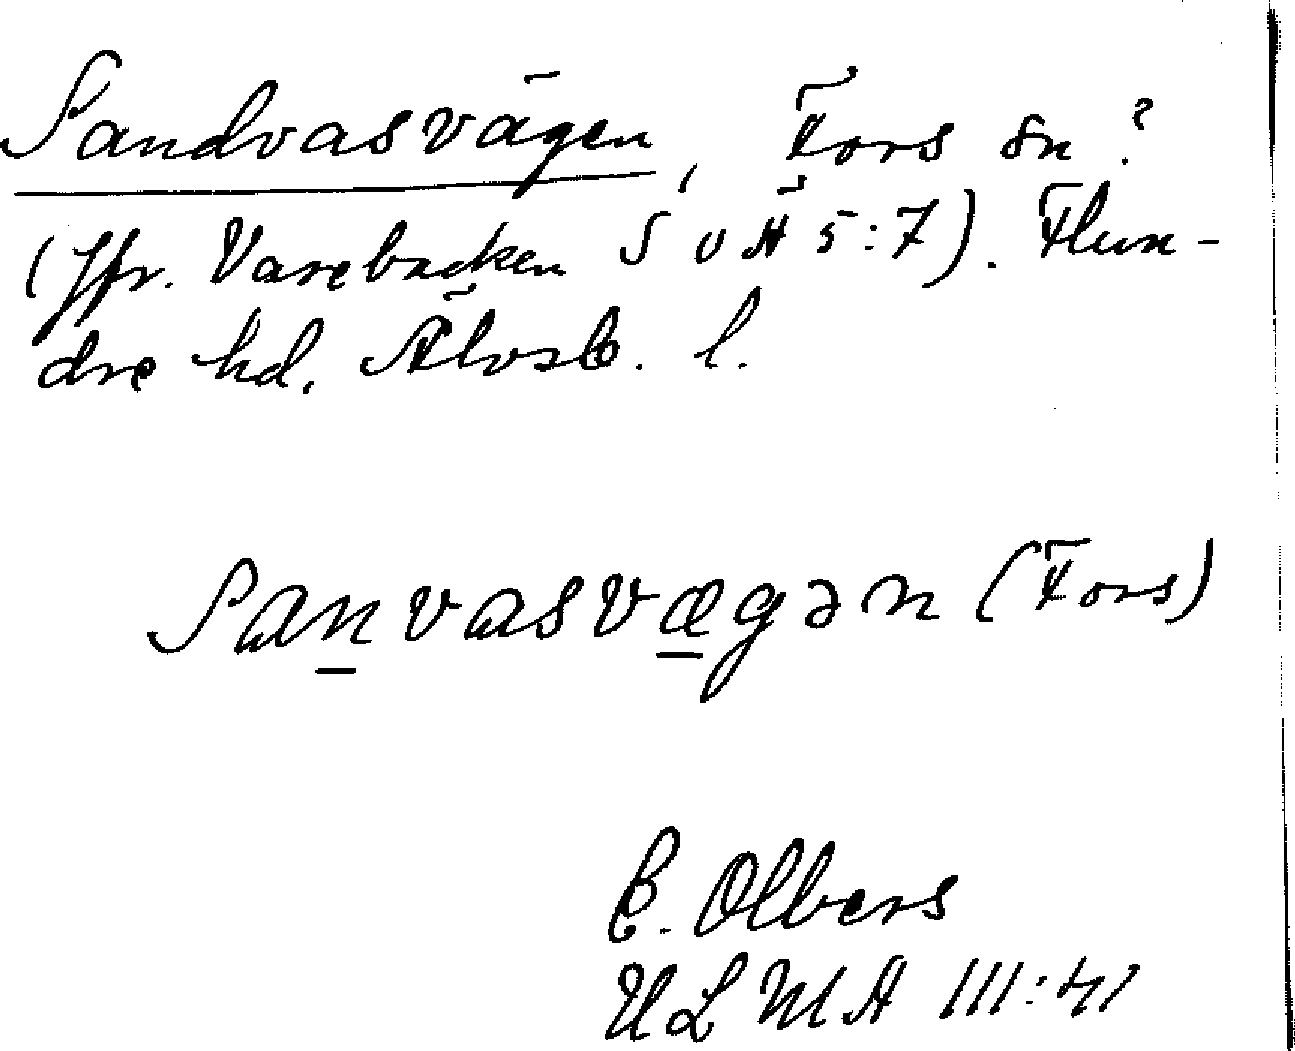 Sandvasvägen, Fors sn?
(Jfr. Varebacken S O Ä 5:7). Flun-
dre hd. Älvsb. l.
Sanvasvægən (Fors)
E. Olbers
ULMA III:41